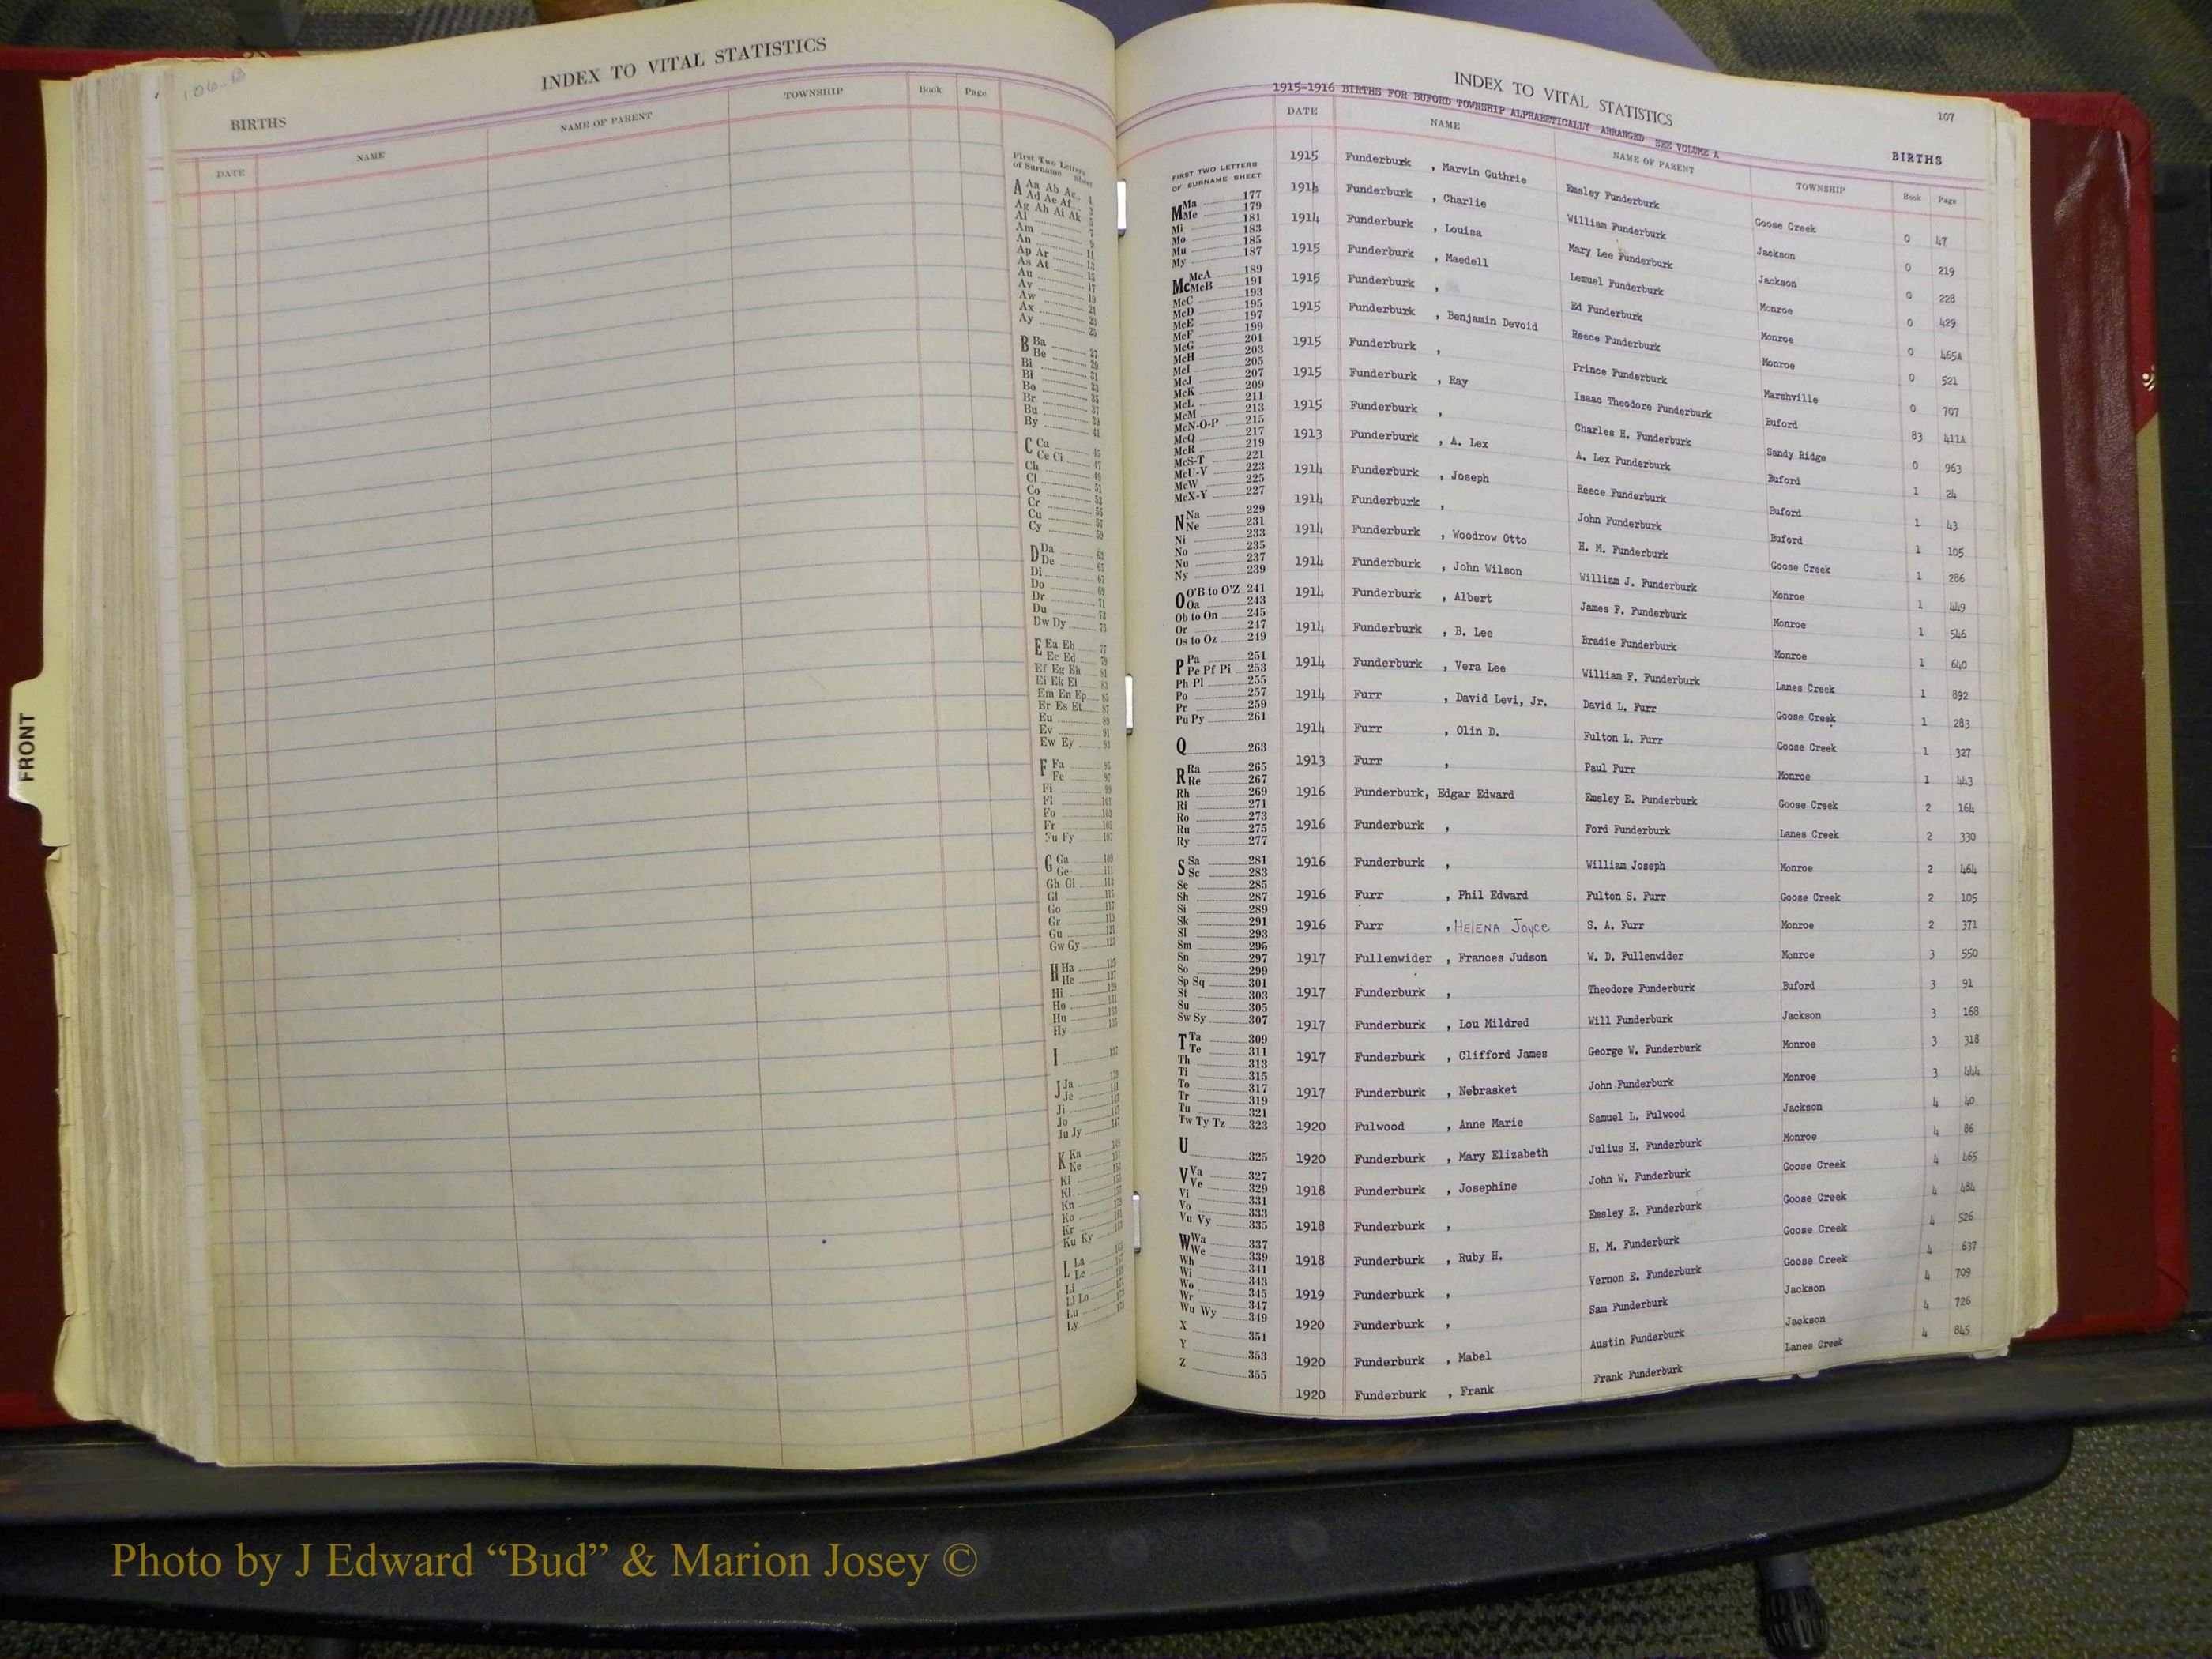 106-B
INDEX TO VITAL STATISTICS
BIRTHS
DATE NAME NAME OF PARENT TOWNSHIP Book Page
First Two Letters
of Surname Sheet
A Aa Ab Ac 1
Ad Ae Af 3
Ag Ah Ai Ak 5
Al 7
Am 9
An 11
Ap Ar 13
As At 15
Au 17
Av 19
Aw 21
Ax 23
Ay 25
B Ba 27
Be 29
Bi 31
Bl 33
Bo 35
Br 37
Bu 39
By 41
C Ca 45
Ce Ci 47
Ch 49
Cl 51
Co 53
Cr 55
Cu 57
Cy 59
D Da 63
De 65
Di 67
Do 69
Dr 71
Du 73
Dw Dy 75
E Ea Eb 77
Ec Ed 79
Ef Eg Eh 81
Ei Ek El 83
Em En Ep 85
Er Es Et 87
Eu 89
Ev 91
Ew Ey 93
F Fa 95
Fe 97
Fi 99
Fl 101
Fo 103
Fr 105
Fu Fy 107
G Ga 109
Ge 111
Gh Gi 113
Gl 115
Go 117
Gr 119
Gu 121
Gw Gy 123
H Ha 125
He 127
Hi 129
Ho 131
Hu 133
Hy 135
I 137
J Ja 139
Je 141
Ji 143
Jo 145
Ju Jy 147
K Ka 149
Ke 151
Ki
Kl
Kn
Ko
Kr
Ku Ky
L La
Le
Li
Ll Lo
Lu
Ly
INDEX TO VITAL STATISTICS 107
1915-1916 BIRTHS FOR BUFORD TOWNSHIP ALPHABETICALLY ARRANGED SEE VOLUME A
BIRTHS
DATE NAME NAME OF PARENT TOWNSHIP Book Page
FIRST TWO LETTERS
OF SURNAME SHEET
M Ma 177
Me 179
Mi 181
Mo 183
Mu 185
My 187
Mc McA 189
McB 191
McC 193
McD 195
McE 197
McF 199
McG 201
McH 203
McI 205
McJ 207
McK 209
McL 211
McM 213
McN-O-P 215
McQ 217
McR 219
McS-T 221
McU-V 223
McW 225
McX-Y 227
N Na 229
Ne 231
Ni 233
No 235
Nu 237
Ny 239
O O'B to O'Z 241
Oa 243
Ob to On 245
Or 247
Os to Oz 249
P Pa 251
Pe Pf Pi 253
Ph Pl 255
Po 257
Pr 259
Pu Py 261
Q 263
R Ra 265
Re 267
Rh 269
Ri 271
Ro 273
Ru 275
Ry 277
S Sa 281
Sc 283
Se 285
Sh 287
Si 289
Sk 291
Sl 293
Sm 295
Sn 297
So 299
Sp Sq 301
St 303
Su 305
Sw Sy 307
T Ta 309
Te 311
Th 313
Ti 315
To 317
Tr 319
Tu 321
Tw Ty Tz 323
U 325
V Va 327
Ve 329
Vi 331
Vo 333
Vu Vy 335
W Wa 337
We 339
Wh 341
Wi 343
Wo 345
Wr 347
Wu Wy 349
X 351
Y 353
Z 355
1915 Funderburk , Marvin Guthrie Emsley Funderburk Goose Creek 0 47
1914 Funderburk , Charlie William Funderburk Jackson 0 219
1914 Funderburk , Louisa Mary Lee Funderburk Jackson 0 228
1915 Funderburk , Maedell Lemuel Funderburk Monroe 0 429
1915 Funderburk , Ed Funderburk Monroe 0 465A
1915 Funderburk , Benjamin Devoid Reece Funderburk Monroe 0 521
1915 Funderburk , Prince Funderburk Marshville 0 707
1915 Funderburk , Ray Isaac Theodore Funderburk Buford 83 411A
1915 Funderburk , Charles H. Funderburk Sandy Ridge 0 963
1913 Funderburk , A. Lex A. Lex Funderburk Buford 1 24
1914 Funderburk , Joseph Reece Funderburk Buford 1 43
1914 Funderburk , John Funderburk Buford 1 105
1914 Funderburk , Woodrow Otto H. M. Funderburk Goose Creek 1 286
1914 Funderburk , John Wilson William J. Funderburk Monroe 1 449
1914 Funderburk , Albert James F. Funderburk Monroe 1 546
1914 Funderburk , B. Lee Bradie Funderburk Monroe 1 640
1914 Funderburk , Vera Lee William F. Funderburk Lanes Creek 1 892
1914 Furr , David Levi, Jr. David L. Furr Goose Creek 1 283
1914 Furr , Olin D. Fulton L. Furr Goose Creek 1 327
1913 Furr , Paul Furr Monroe 1 443
1916 Funderburk, Edgar Edward Emsley E. Funderburk Goose Creek 2 164
1916 Funderburk , Ford Funderburk Lanes Creek 2 330
1916 Funderburk , William Joseph Monroe 2 464
1916 Furr , Phil Edward Fulton S. Furr Goose Creek 2 105
1916 Furr , HELENA Joyce S. A. Furr Monroe 2 371
1917 Fullenwider , Frances Judson W. D. Fullenwider Monroe 3 550
1917 Funderburk , Theodore Funderburk Buford 3 91
1917 Funderburk , Lou Mildred Will Funderburk Jackson 3 168
1917 Funderburk , Clifford James George W. Funderburk Monroe 3 318
1917 Funderburk , Nebrasket John Funderburk Monroe 3 444
1920 Fulwood , Anne Marie Samuel L. Fulwood Jackson 4 40
1920 Funderburk , Mary Elizabeth Julius H. Funderburk Monroe 4 86
1918 Funderburk , Josephine John W. Funderburk Goose Creek 4 465
1918 Funderburk , Emsley E. Funderburk Goose Creek 4 484
1918 Funderburk , Ruby H. H. M. Funderburk Goose Creek 4 526
1919 Funderburk , Vernon E. Funderburk Goose Creek 4 637
1920 Funderburk , Sam Funderburk Jackson 4 709
1920 Funderburk , Mabel Austin Funderburk Jackson 4 726
1920 Funderburk , Frank Frank Funderburk Lanes Creek 4 845
FRONT
Photo by J Edward “Bud” & Marion Josey ©